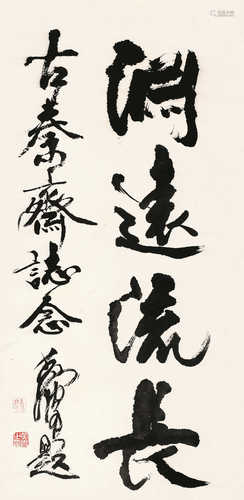 渊遠流長
古秦齋誌念
題